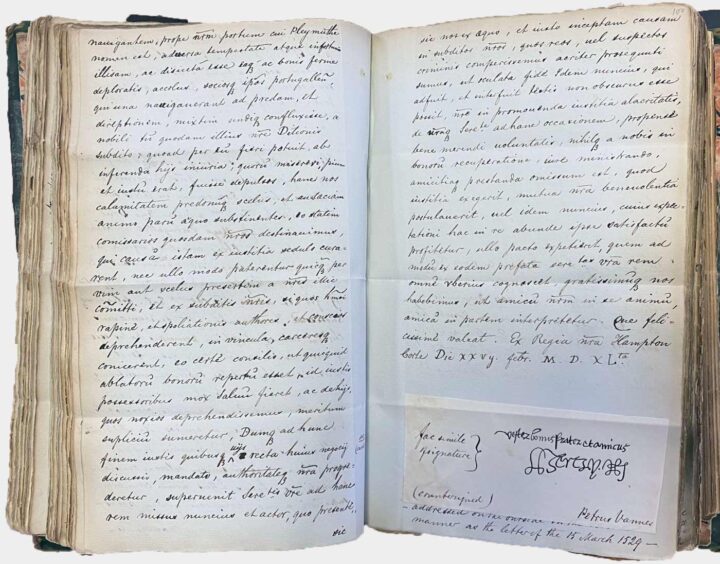 navigantem, prope nr̄m portum cui Pleymuthe
nomen est, adversa tempestate atque
illesam, ac disiecta esse bonis ferme
deploratis; accolas, sociosq ip̄os portugallen̄.
qui una navigauerant ad predam, et
direptionem, mixtim undiq confluxisse, a
nobili tn̄ quodam illius nr̄e Ditionis
subdito, quoad per eū fieri potuit, ab
inferenda hijs iniuria, quorū misereri, pium
et iustū erat, fuisse depulsos, hanc nos
calamitatem predonūq scelus, et audaciam
animo parū æquo substinentes, eo statim
comissarios quosdam nr̄os destinauimus,
qui causā istam ex iustitia sedulo cura-
rent, nec ullo modo paterentur quicq per
vim aut scelus presertim a nr̄is illic
com̄itti, et ex subditis nr̄is, si quos
rapine, et spoliationis authores, et conscios
deprehenderent, in vincula, carceresq
conicerent, eo certe consilio, ut quicquid
ablatorū bonorū repertū esset, id iustis
possessoribus mox saluū fieret, ac de hijs
quos noxios deprehendissemus, meritum
supliciū sumeretur, Dumq ad hunc
finem iustis quibusq uijs recta huius negocij
discussis, mandato, authoritateq nr̄a progre-
deretur, superuenit Sere̅tis vr̄e ad hanc
rem missus nuncius et actor, quo presente,
sic
100
sic nos ex æquo, et iusto inceptam causam
in subditos nr̄os, quos reos, uel suspectos
criminis comperissemus acriter prosequuti
sumus, ut oculata fide Idem nuncius, qui
adfuit, et interfuit testis non obscurus esse
possit, nr̄a in promouenda iustitia alacritatis,
de vr̄aq Sere̅te ad hanc occasionem, propense
bene merendi voluntatis, nihilq a nobis in
bonorū recuperatione, iure ministrando,
amicitiaq prestanda omissum est, quod
iustitia exegerit, mutua nr̄a beneuolentia
postulauerit, uel idem nuncius, cuius expec-
tationi hac in re abunde ipse satisfactū
profitetur, ullo pacto expetierit, quem ad
modū ex eodem prefata sere̅tas vr̄a rem
omnē vberius cognoscet, gratissimūq nos
habebimus, si amicū nr̄m in se animū,
amicā in partem interprētetur. Que feli-
cissimē valeat. Ex Regia nr̄a Hampton
Corte Die xxvij. febr. M. D. X L.ta
fac simile
of signature
vester bonus frater et amicus
(countersigned)
Petrus Vannes
addressed on the outside in
manner as the letter of the 15 March 1529 —